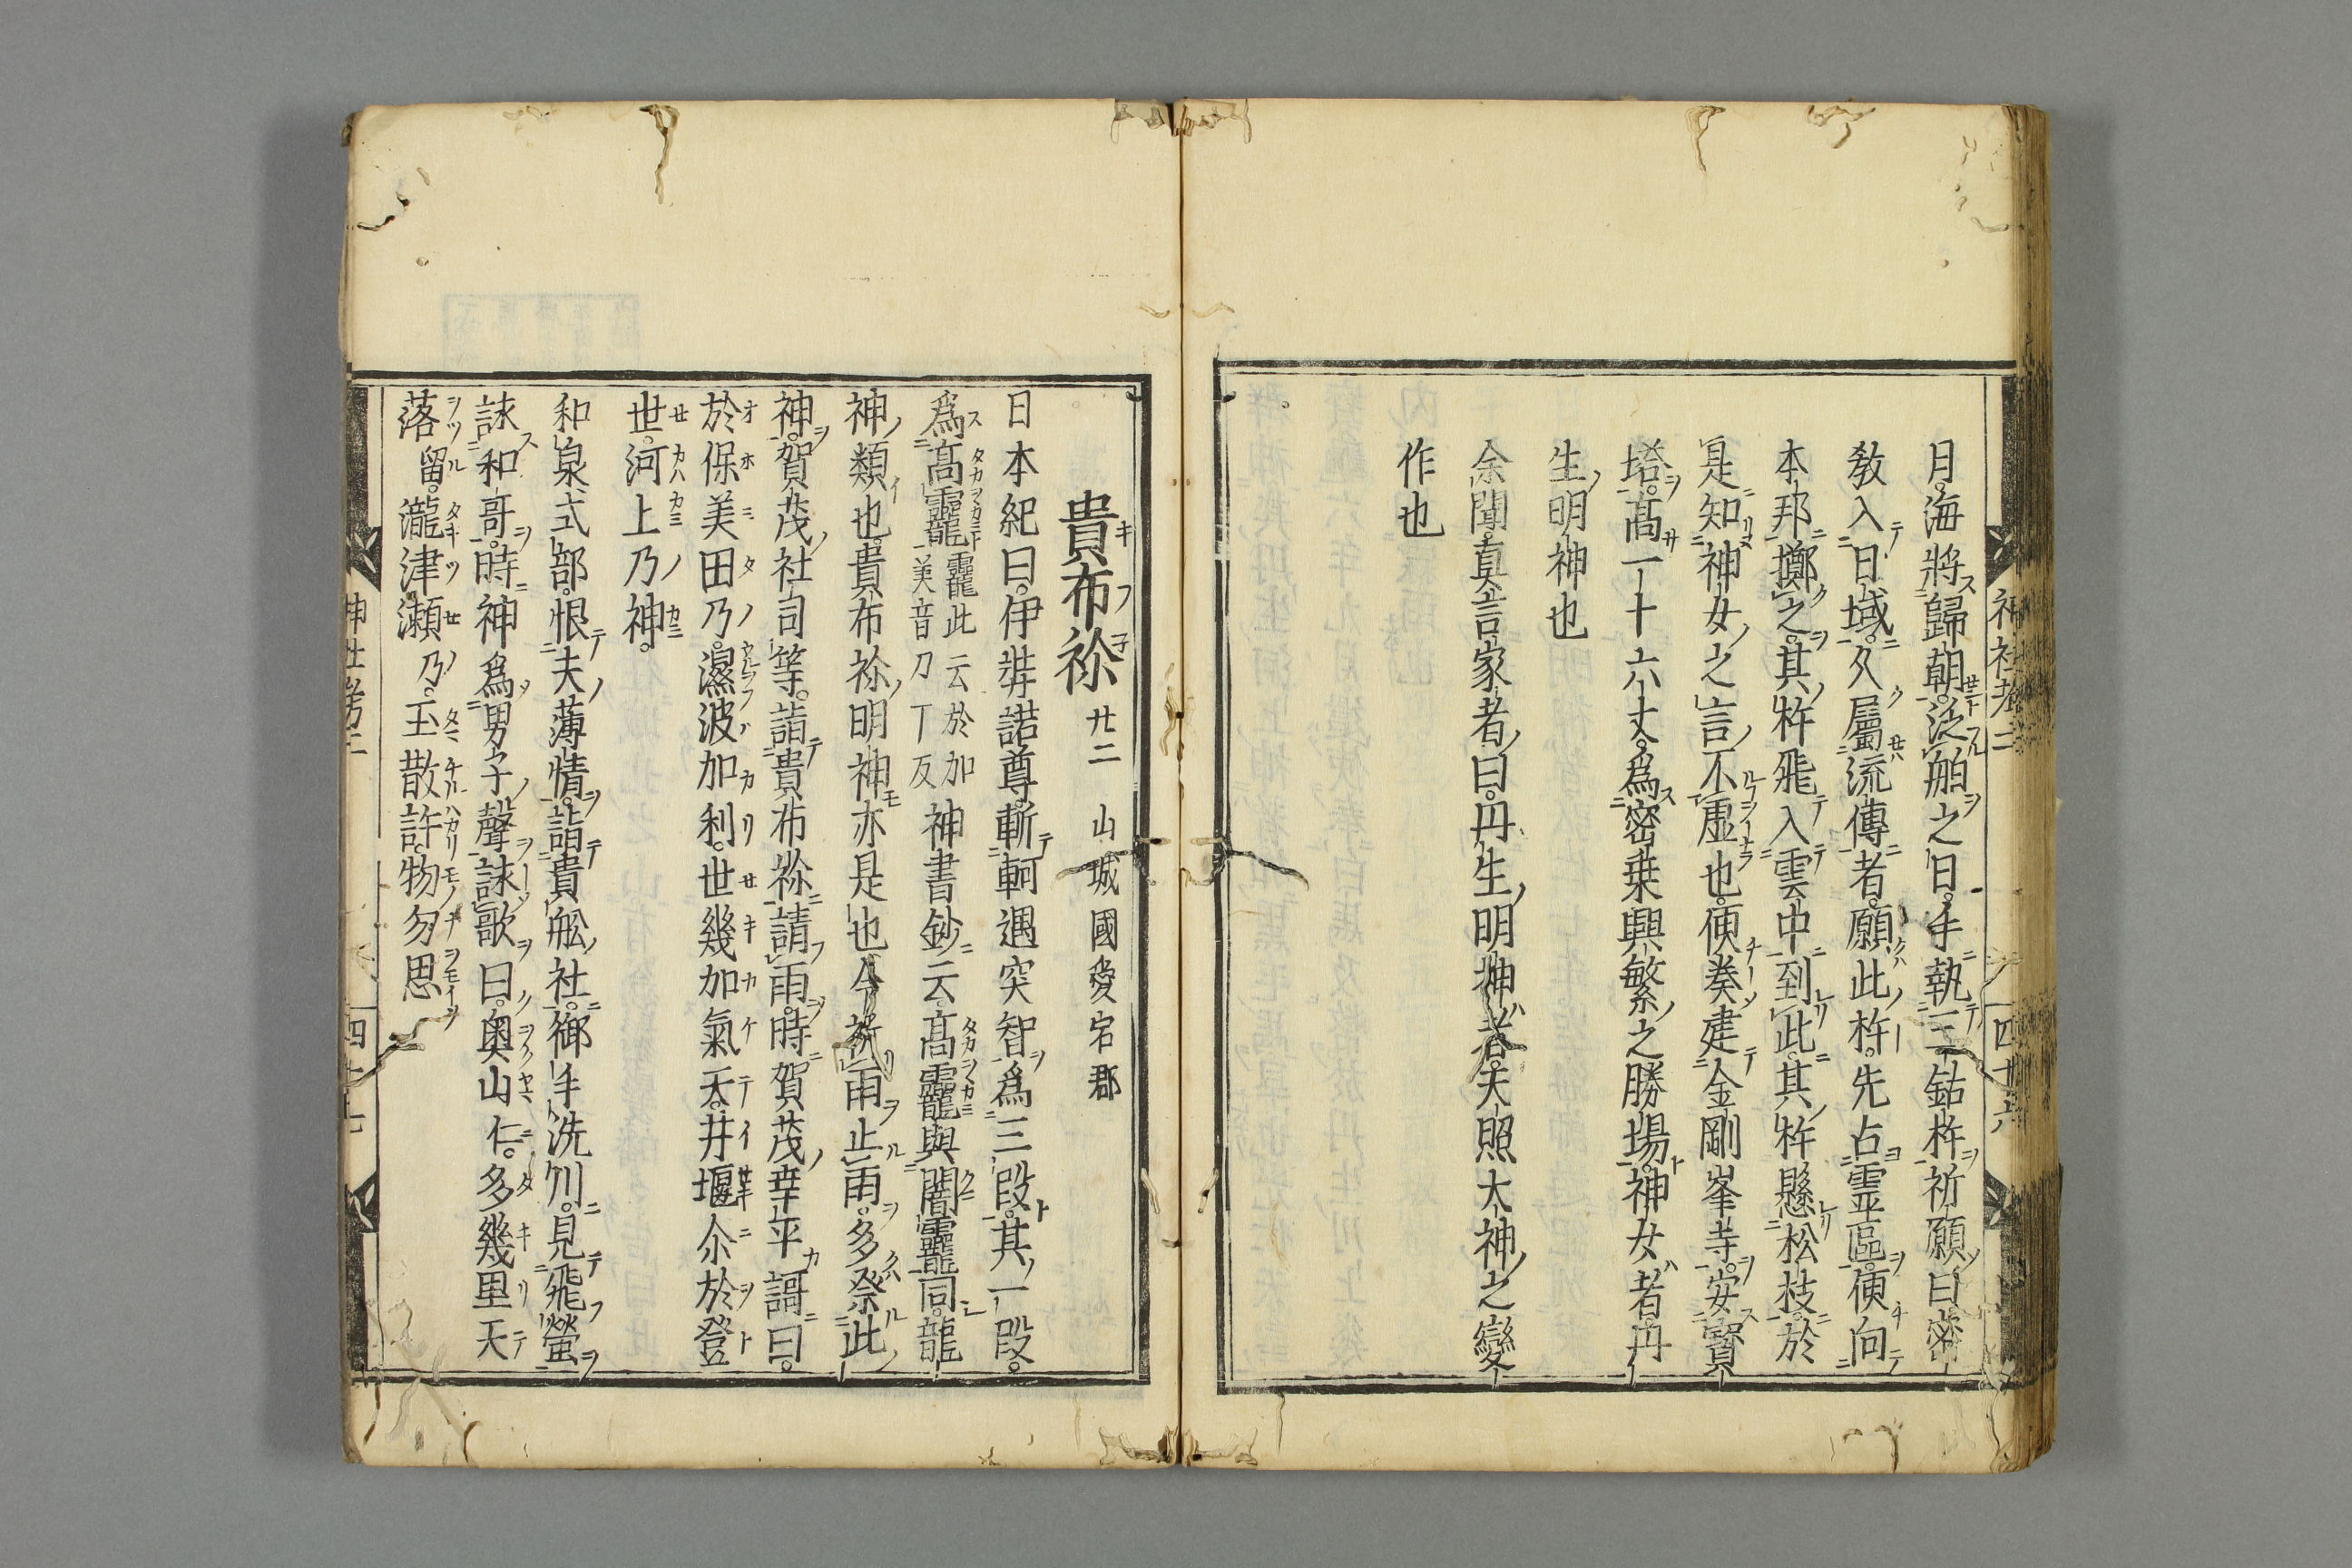 月。海將歸朝。泛舶之日。手執三鈷杵祈願曰密
教入日域。久屬流傳者。願此杵。先占靈區。便向
本邦擲之。其杵飛入雲中到此。其杵懸松枝。於
是知神女之言不虛也。便奏建金剛峯寺。安寶
塔。高一十六丈。爲密乗興繁之勝場。神女者丹
生明神也
余聞。真言家者曰。丹生明神者。天照大神之變
作也
貴布祢 廿二 山城國愛宕郡
日本紀曰。伊弉諾尊。斬軻遇突智。爲三段。其一段。
爲高龗 龗此云於加美音力丁反 神書鈔云。高龗與闇龗同。龍
神類也。貴布祢明神亦是也今祈雨止雨。多祭此
神。賀茂社司等。詣貴布祢請雨。時賀茂幸平謌曰。
於保美田乃。濕波加利。世幾加氣天。井堰尒於登
世。河上乃神。
和泉式部。恨夫薄情。詣貴舩社。御手洗川。見飛螢
詠和哥。時神爲男子聲詠歌曰。奥山仁。多幾里天
落留。瀧津瀬乃。玉散許。物勿思
神社考二
四十六